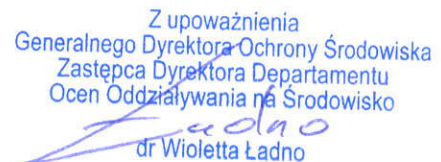 Z upoważnienia
Generalnego Dyrektora Ochrony Środowiska
Zastępca Dyrektora Departamentu
Ocen Oddziaływania na Środowisko
Ładno
dr Wioletta Ładno